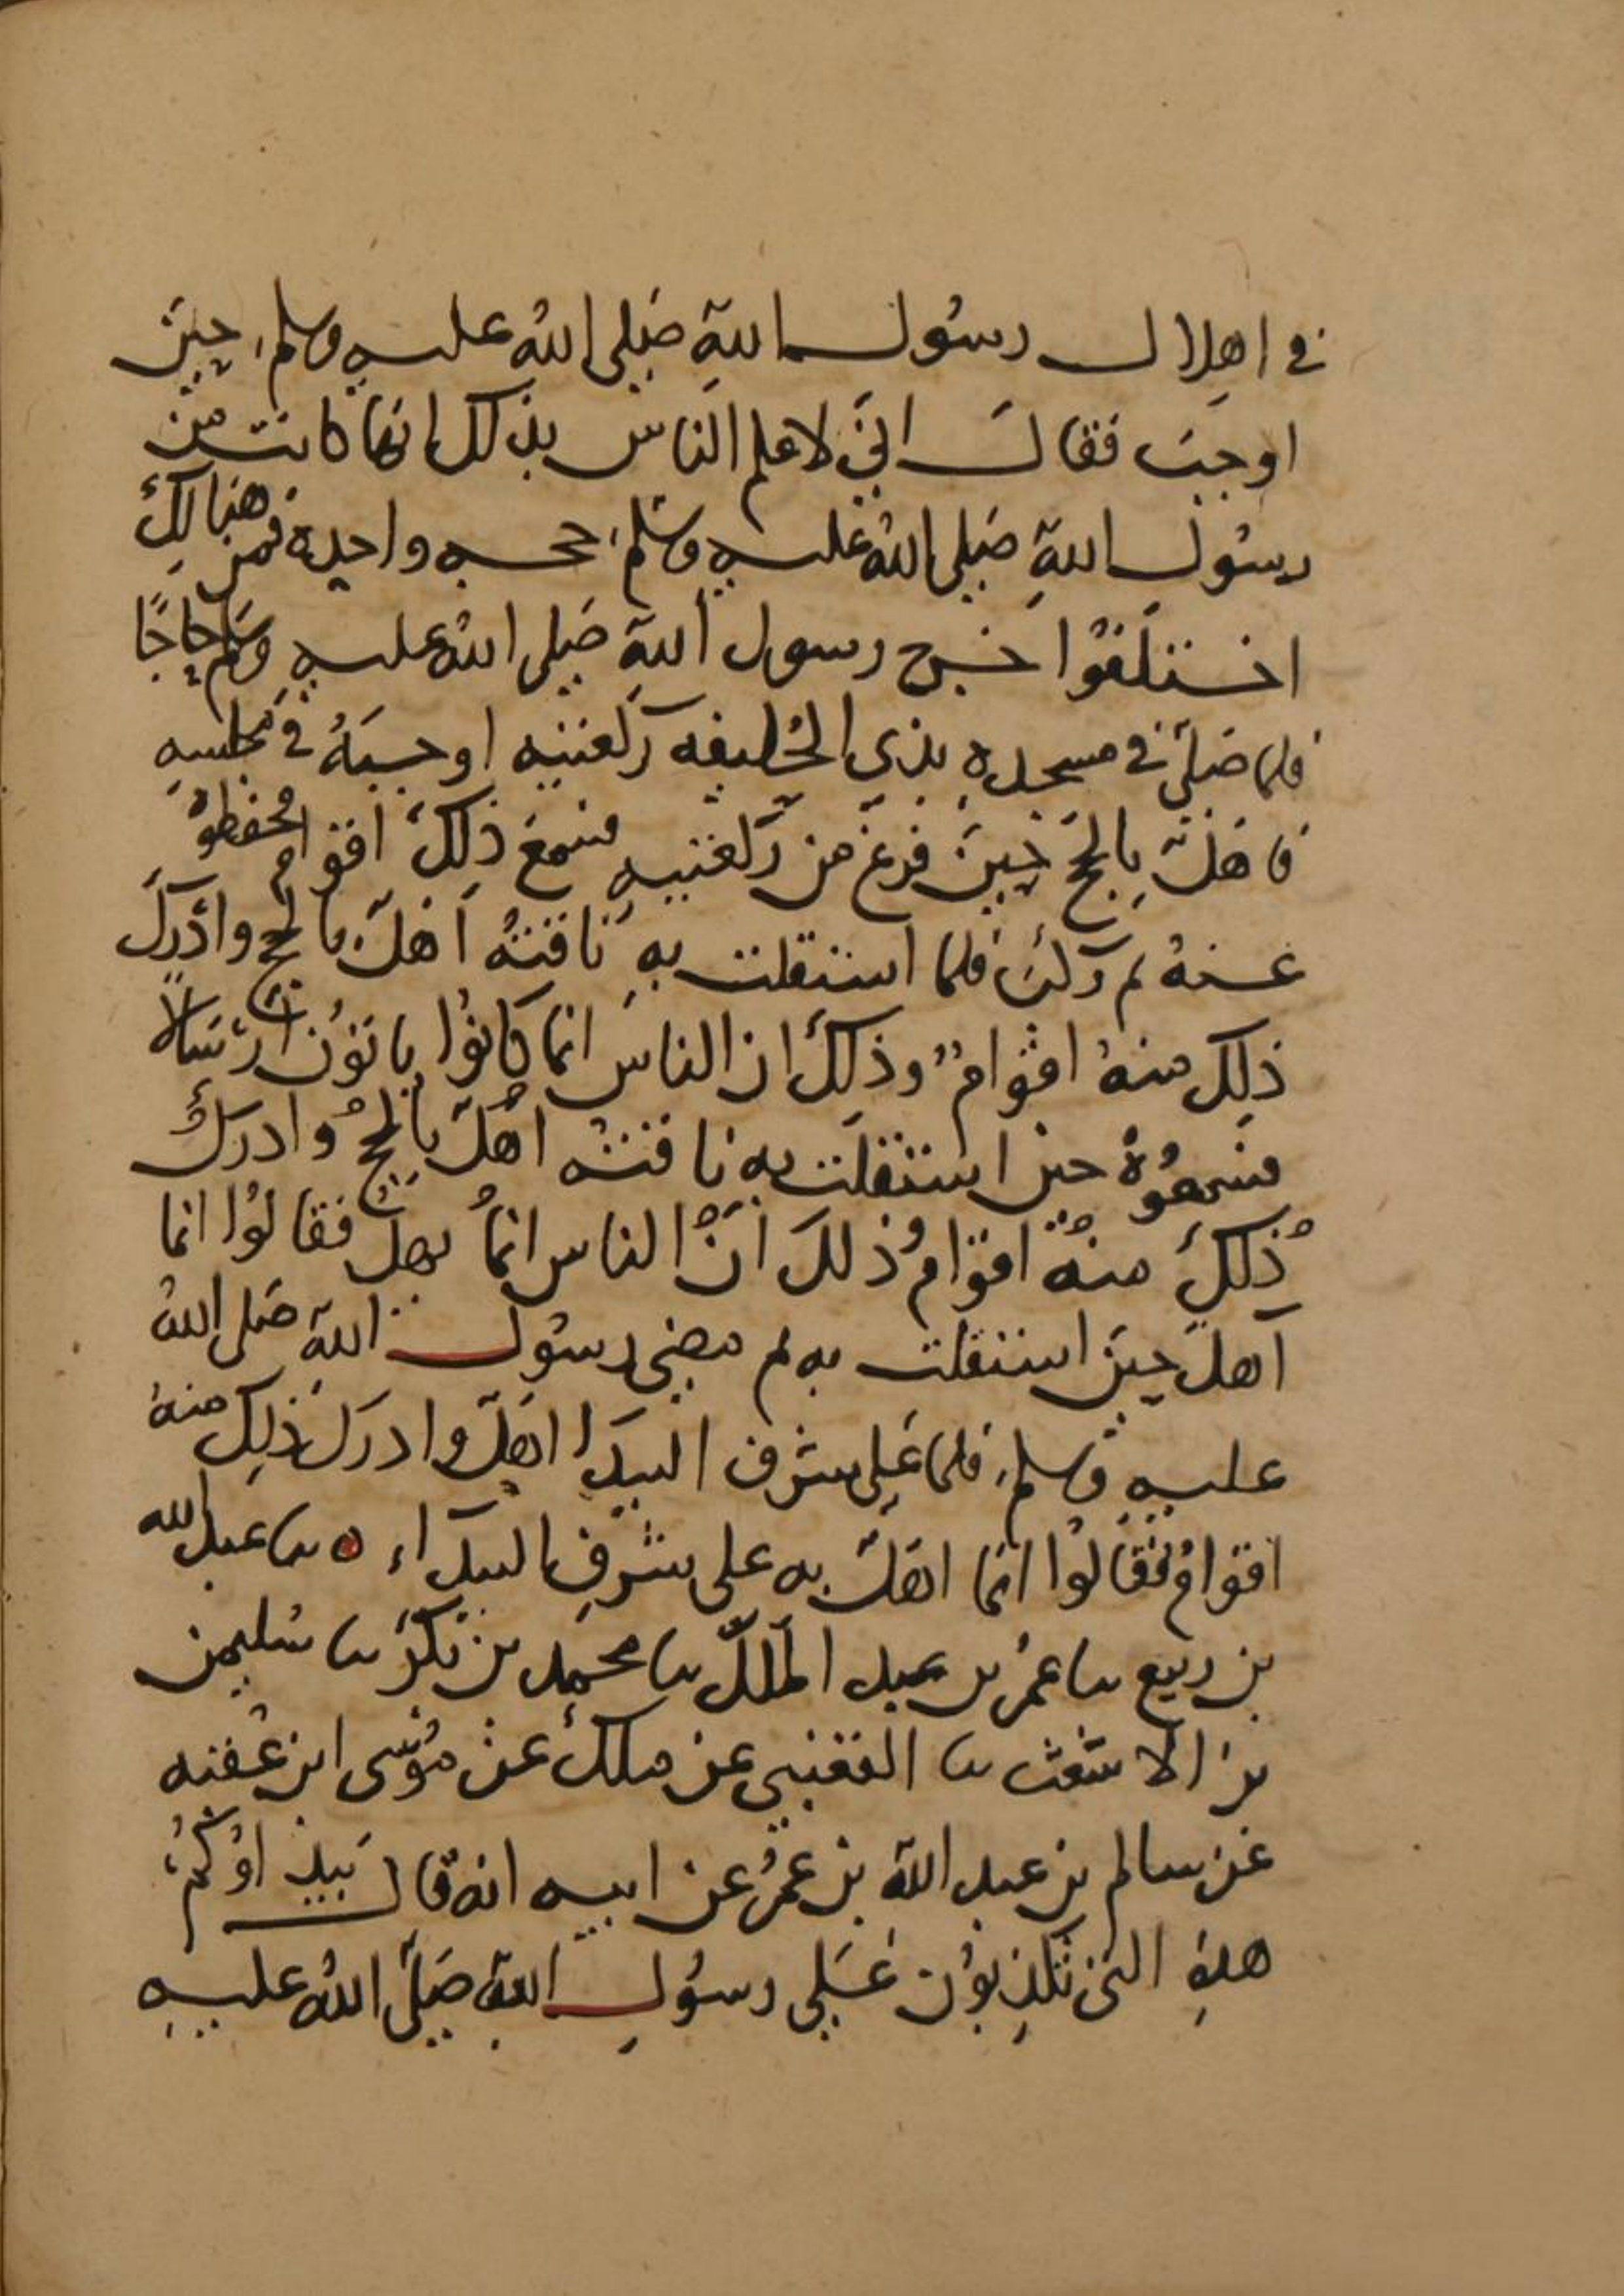 في اهلال رسول الله صلى الله عليه وسلم حين
اوجب فقال اني لاعلم الناس بذلك انها كانت من
رسول الله صلى الله عليه وسلم حجه واحدة فمن هنالك
اختلفوا خرج رسول الله صلى الله عليه وسلم حاجًا
فلما صلى في مسجده بذي الحليفه ركعتيه اوجبه في مجلسه
فاهلّ بالحج حين فرغ من ركعتيه فسمع ذلك اقوام فحفظوه
عنه ثم ركب فلما استقلت به ناقته اهلّ بالحج وادرك
ذلك منه اقوام وذلك ان الناس انما كانوا ياتون ارسالًا
فسمعوه حين استقلت به ناقته اهلّ بالحج وادرك
ذلك منه اقوام وذلك انّ الناس انما يهل فقالوا انما
اهل حين استقلت به ثم مضى رسول الله صلى الله
عليه وسلم فلما على شرف البيدا اهلّ وادرك ذلك منه
اقوام فقالوا انما اهلّ به على شرف البيداء ه نا عبد الله
بن ربيع نا عمر بن عبد الملك نا محمد بن بكر نا سليمن
بن الاشعث نا القعنبي عن ملك عن موسى ابن عقبه
عن سالم بن عبد الله بن عمر عن ابيه انه قال بيداوكم
هذه التى تكذبون على رسول الله صلى الله عليه